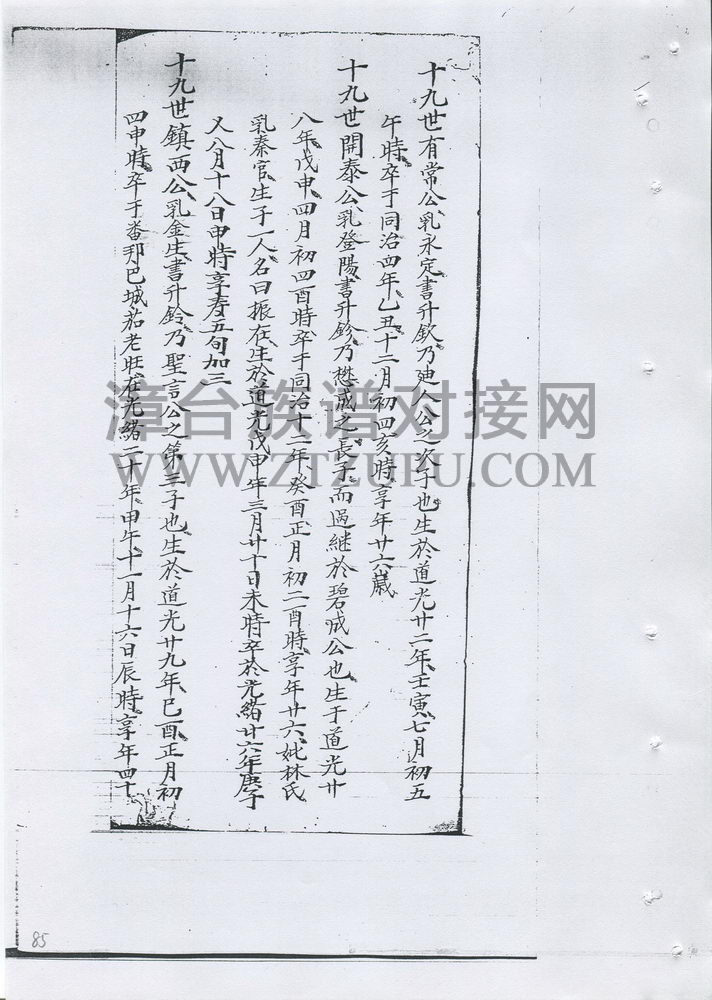 十九世有常公乳永定書升欽乃廸人公之次子也生於道光廿二年壬寅七月初五
午時卒于同治四年乙丑十二月初四亥時享年廿六嵗
十九世開泰公乳登陽書升鈐乃懋成之長子而過継於碧成公也生于道光廿
八年戊申四月初四酉時卒于同治十二年癸酉正月初二酉時享年廿六妣林氏
乳秦官生子一人名曰振在生於道光戊申年三月廿十日未時卒於光緒廿六年庚子
又八月十八日申時享寿五旬加三
十九世鎮西公乳金生書升鈴乃聖言公之第三子也生於道光廿九年己酉正月初
四申時卒于番邦巴城茄老旺在光緒二十年甲午十一月十六日辰時享年四十
漳台族谱对接网
WWW.ZTZUPU.COM
85